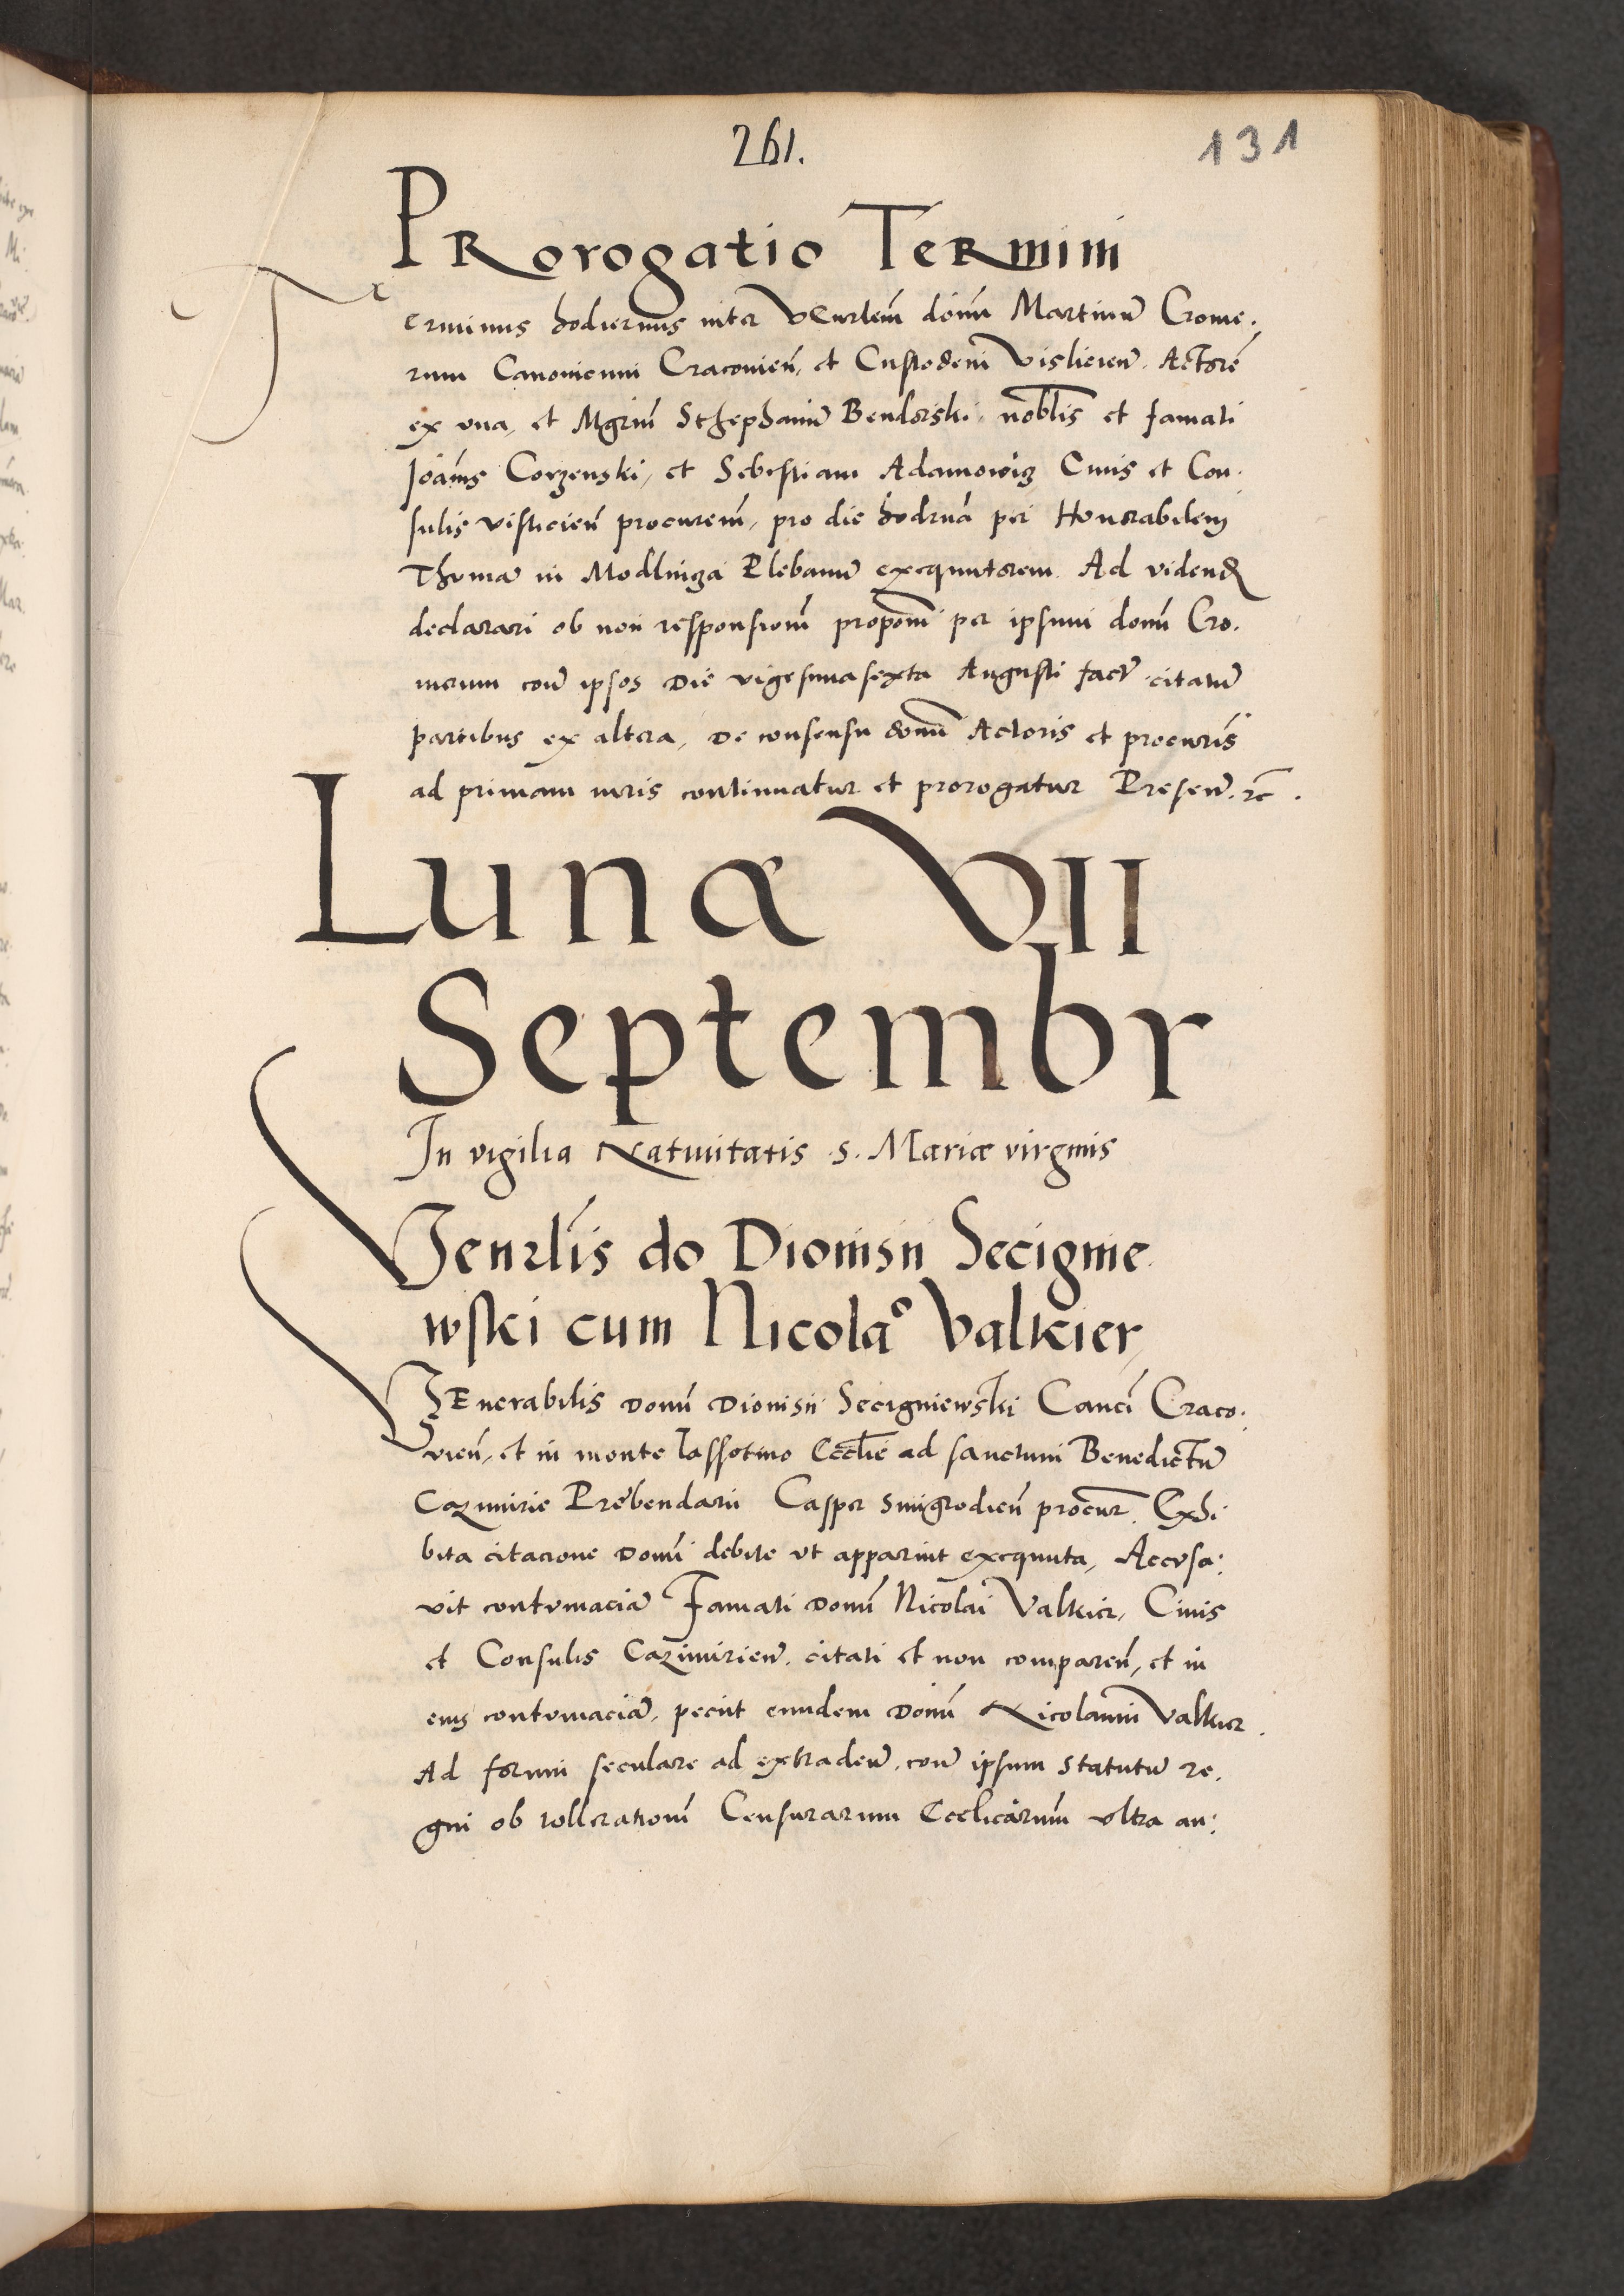 261.
131
PRorogatio TeRmini
Terminus hodiernus inter VEnrlem̄ dōnū Martinū Crome.
rum Canonicum Craconien̄, et Custodem Visliciēn. Actorē
ex vna, et Mgrm̄ Sthephanū Bendorski, nobl̄is et famati
Joān̄is Corzenski, et Sebestiani Adamowiz Ciuis et Con.
sulis visliciēn procurem̄, pro die hodrnā per Honorabilem
Thomā in Modlniza Plebanū exequutorem. Ad videnꝶ
declarari ob non responsionem̄ propon̄i per ipsum dom̄n Cro.
merum cont̄ ipsos Die vigesima sexta Augusti fact̄ citatū
partibus ex altera, De consensu domn̄ Actoris et procuris̄
ad primam iuris continuatur et prorogatur Presen̄. rc̄.
Lunæ VII
Septembr
In vigilia Natiuitatis .S. Mariæ virginis
Venrlīs do Dionisii Secignie.
wski cum Nicolaº Valkier,
VEnerabilis Domn̄ Dionisii Secigniewski Cancī Craco.
vien̄, et in monte lassotino Eccl̄ie ad sanctum Benedictū
Cazimirie Prebendarii Casper smigrodien̄ procur̄. Exhi
bita citacione Domn̄i debite vt apparuit exequuta, Accvsa:
vit contvmaciā Famati Domn̄ Nicolai Valkier, Ciuis
et Consulis Cazimiriēn. citati et non comparen̄, et in
eius contvmaciā, peciit eundem Domn̄ Nicolaum Valkier.
Ad forum seculare ad extraden̄. cont̄ ipsum statutū re.
gni ob tollerationem̄ Censurarum Ecclicārum̄ vltra an: